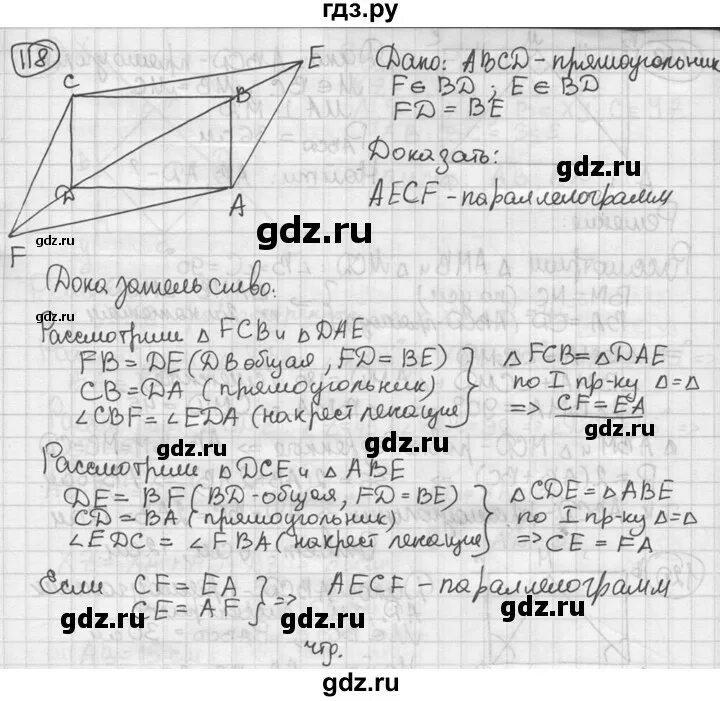 гдз.ру
118
E
C
B
D
A
F
Дано: ABCD - прямоугольник
F ∈ BD ; E ∈ BD
FD = BE
Доказать:
gdz.ru
AECF - параллелограмм
gdz.ru
gdz.ru
Доказательство:
gdz.ru
Рассмотрим △ FCB и △ DAE
FB = DE (DB общая, FD = BE) } △ FCB = △ DAE
CB = DA (прямоугольник) по I пр-ку △ = △
∠CBF = ∠EDA (накрест лежащие) => CF = EA
gdz.ru gdz.ru
Рассмотрим △ DCE и △ ABE
DE = BF (BD - общая, FD = BE) } △ CDE = △ ABE
CD = BA (прямоугольник) по I пр-ку △ = △
∠EDC = ∠FBA (накрест лежащие) => CE = FA
gdz.ru
gdz.ru
Если CF = EA } => AECF - параллелограмм
CE = AF
gdz.ru
gdz.ru
чтр.
gdz.ru
gdz.ru